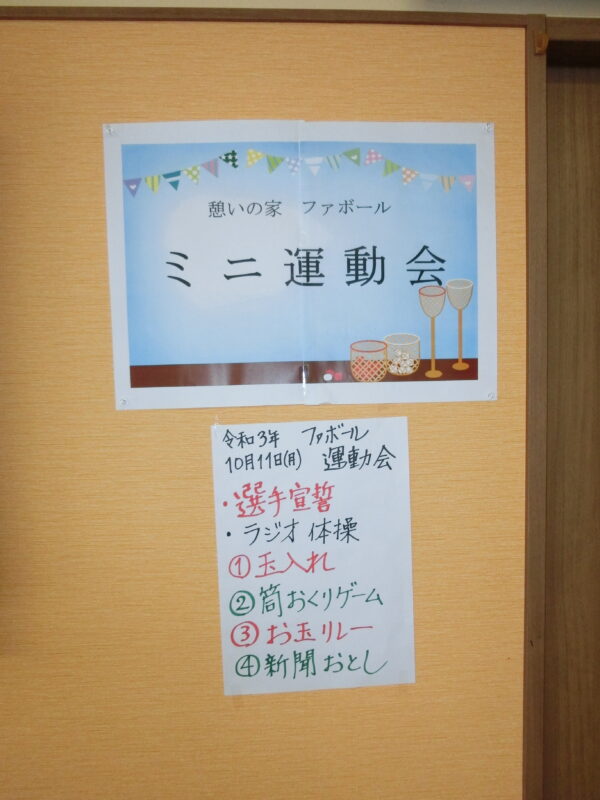 憩いの家 ファボール
ミニ運動会
令和3年 ファボール
10月11日(月) 運動会
・選手宣誓
・ラジオ体操
①玉入れ
②筒おくりゲーム
③お玉リレー
④新聞おとし